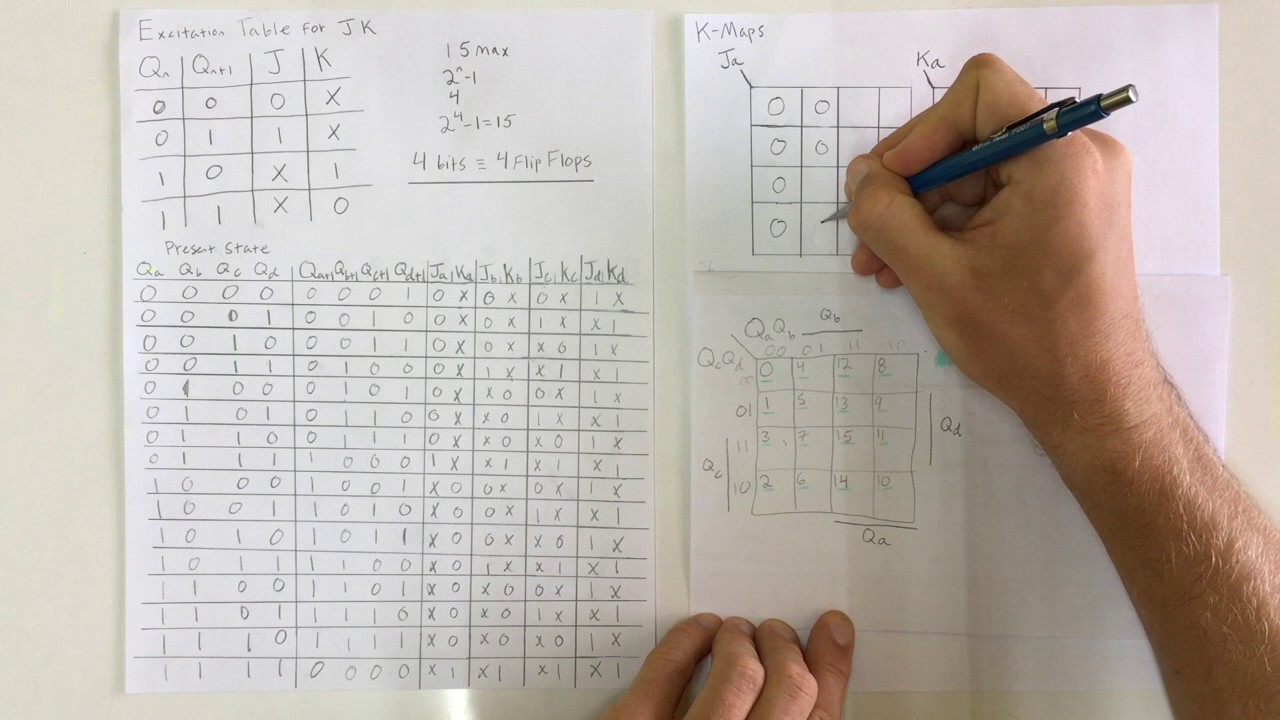 Excitation Table for JK
Qn Qn+1 J K
0 0 0 X
0 1 1 X
1 0 X 1
1 1 X 0
15 max
2^n-1
4
2^4-1=15
4 bits ≡ 4 Flip Flops
Present State
Qa Qb Qc Qd Qa+1 Qb+1 Qc+1 Qd+1 Ja Ka Jb Kb Jc Kc Jd Kd
0 0 0 0 0 0 0 1 0 X 0 X 0 X 1 X
0 0 0 1 0 0 1 0 0 X 0 X 1 X X 1
0 0 1 0 0 0 1 1 0 X 0 X X 0 1 X
0 0 1 1 0 1 0 0 0 X 1 X X 1 X 1
0 1 0 0 0 1 0 1 0 X X 0 0 X 1 X
0 1 0 1 0 1 1 0 0 X X 0 1 X X 1
0 1 1 0 0 1 1 1 0 X X 0 X 0 1 X
0 1 1 1 1 0 0 0 1 X X 1 X 1 X 1
1 0 0 0 1 0 0 1 X 0 0 X 0 X 1 X
1 0 0 1 1 0 1 0 X 0 0 X 1 X X 1
1 0 1 0 1 0 1 1 X 0 0 X X 0 1 X
1 0 1 1 1 1 0 0 X 0 1 X X 1 X 1
1 1 0 0 1 1 0 1 X 0 X 0 0 X 1 X
1 1 0 1 1 1 1 0 X 0 X 0 1 X X 1
1 1 1 0 1 1 1 1 X 0 X 0 X 0 1 X
1 1 1 1 0 0 0 0 X 1 X 1 X 1 X 1
K-Maps
Ja
Ka
0 0
0 0
0
0
Qb
QaQb
00 01 11 10
QcQd
00 0 4 12 8
01 1 5 13 9
11 3 7 15 11
10 2 6 14 10
Qd
Qc
Qa